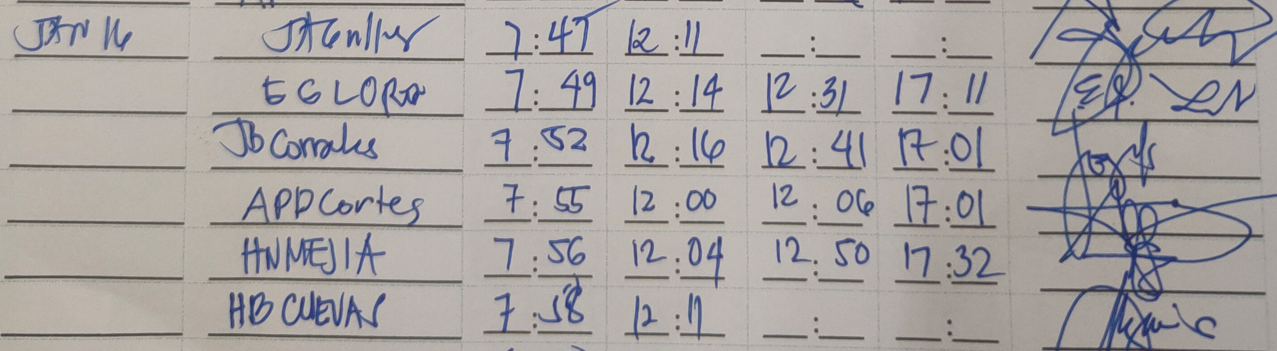 JAN 16 7:47 12:11 __:__ __:__
EGLORA 7:49 12:14 12:31 17:11
JBCorrales 7:52 12:16 12:41 17:01
APDCortes 7:55 12:00 12:06 17:01
HNMEJIA 7:56 12:04 12:50 17:32
HBCUEVAS 7:58 12:11 __:__ __:__